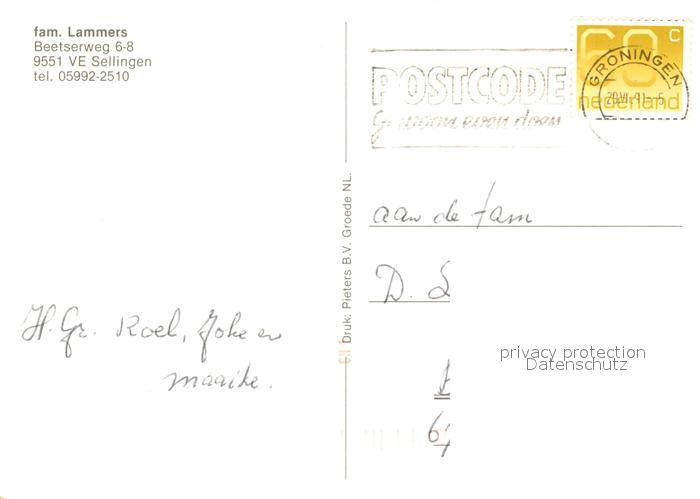 fam. Lammers
Beetserweg 6-8
9551 VE Sellingen
tel. 05992-2510
H. Gr. Roel, Joke en
Maaike.
Druk: Pieters B.V. Groede NL.
60 c
nederland
GRONINGEN
POSTCODE
Gewoon even doen
aan de fam
D. S
privacy protection
Datenschutz